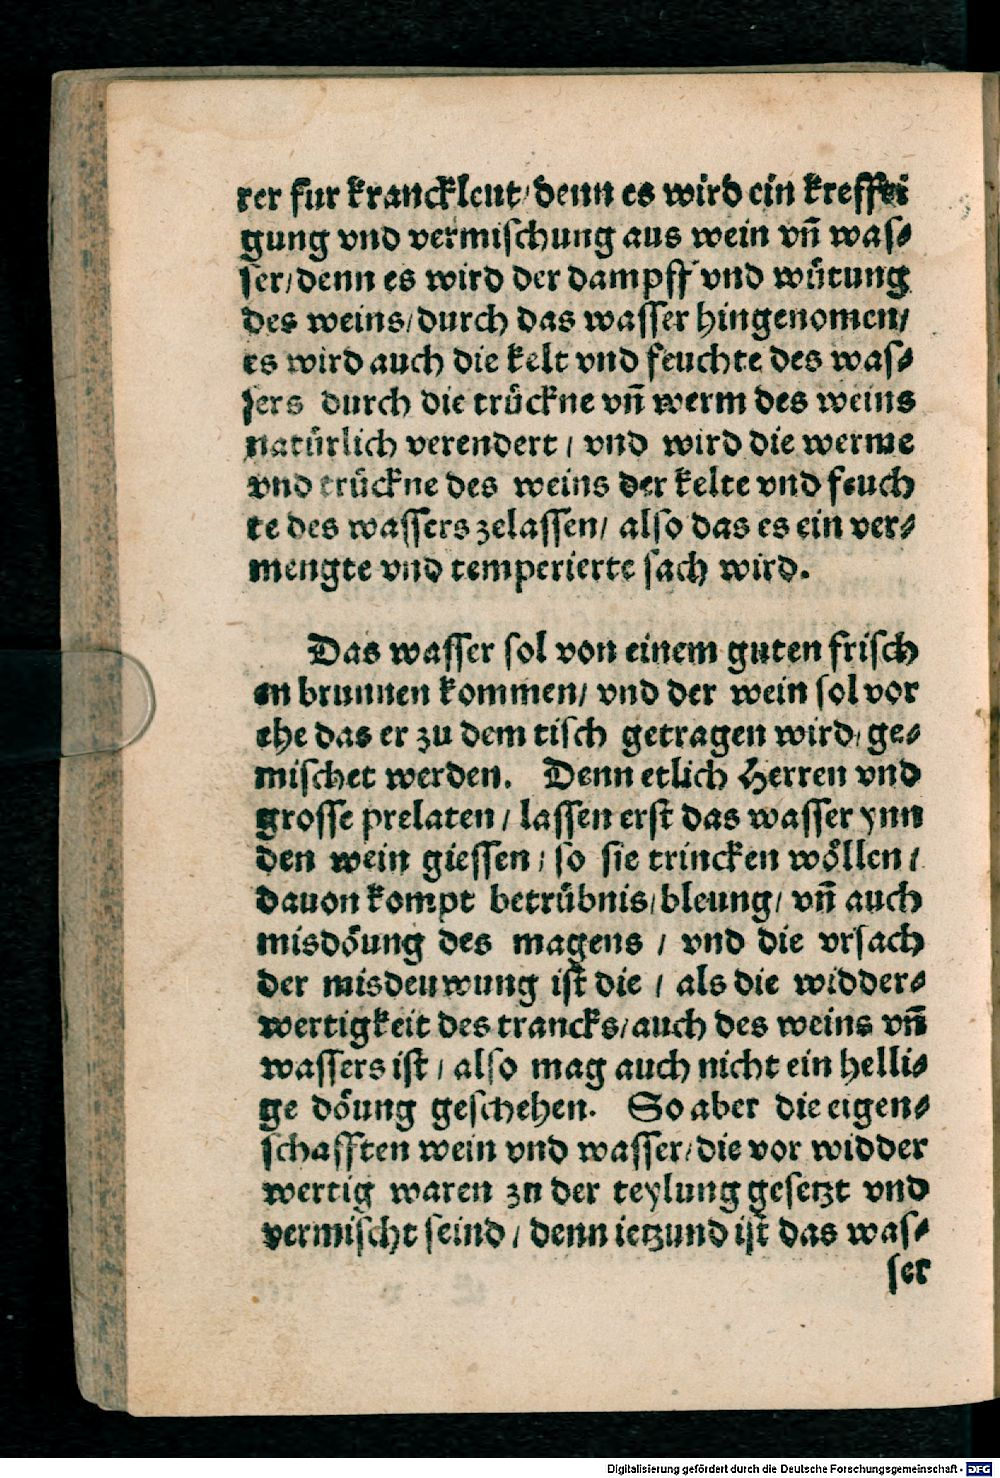 rer fur kranckleut/ denn es wird ein krefftigung vnd vermischung aus wein vñ was⸗
ser/ denn es wird der dampff vnd wütung
des weins/ durch das wasser hingenomen/
es wird auch die kelt vnd feuchte des was⸗
sers durch die trückne vñ werm des weins
natürlich verendert / vnd wird die werme
vnd trückne des weins der kelte vnd feuch
te des wassers zelassen/ also das es ein ver⸗
mengte vnd temperierte sach wird.
Das wasser sol von einem guten frisch
en brunnen kommen/ vnd der wein sol vor
ehe das er zu dem tisch getragen wird/ ge⸗
mischet werden. Denn etlich Herren vnd
grosse prelaten / lassen erst das wasser ynn
den wein giessen / so sie trincken wöllen /
dauon kompt betrübnis/ bleung/ vñ auch
misdöung des magens / vnd die vrsach
der misdeuwung ist die / als die widder⸗
wertigkeit des trancks/ auch des weins vñ
wassers ist / also mag auch nicht ein helli⸗
ge döung geschehen. So aber die eigen⸗
schafften wein vnd wasser/ die vor widder
wertig waren zu der teylung gesetzt vnd
vermischt seind / denn ietzund ist das was⸗
ser
Digitalisierung gefördert durch die Deutsche Forschungsgemeinschaft - DFG